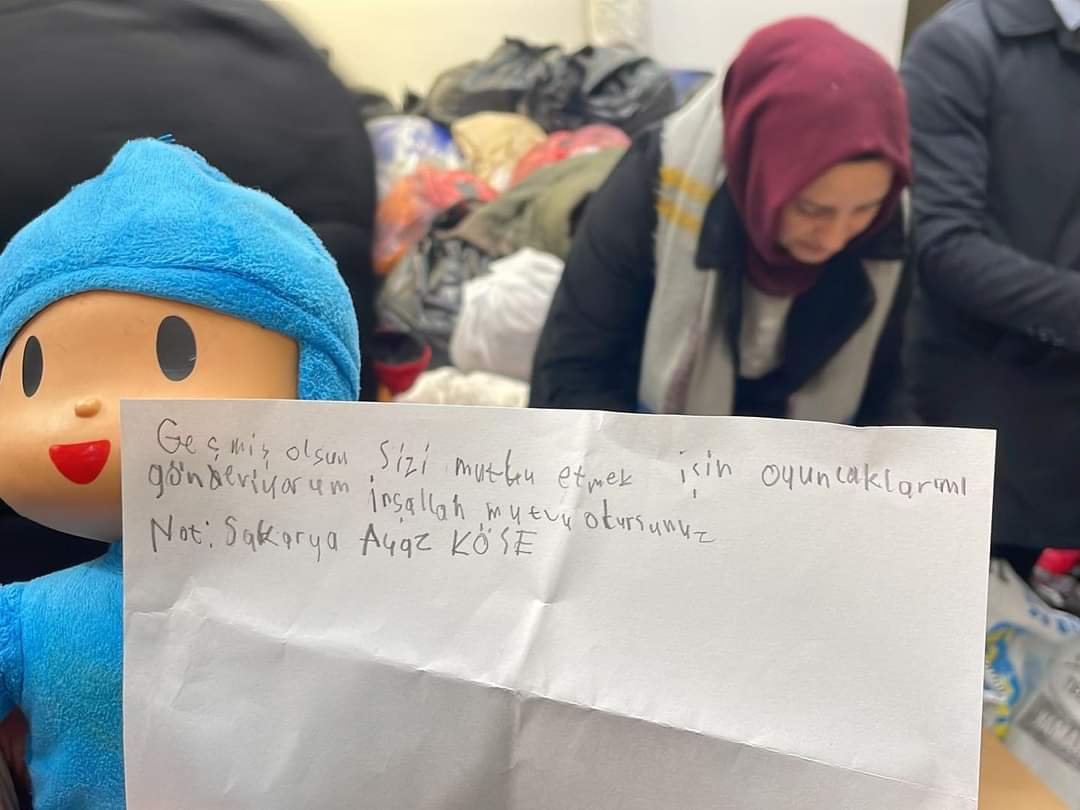 Geçmiş olsun Sizi mutlu etmek için oyuncaklarımı
gönderiyorum İnşallah mutlu olursunuz
Not: Sakarya Ayaz KÖSE